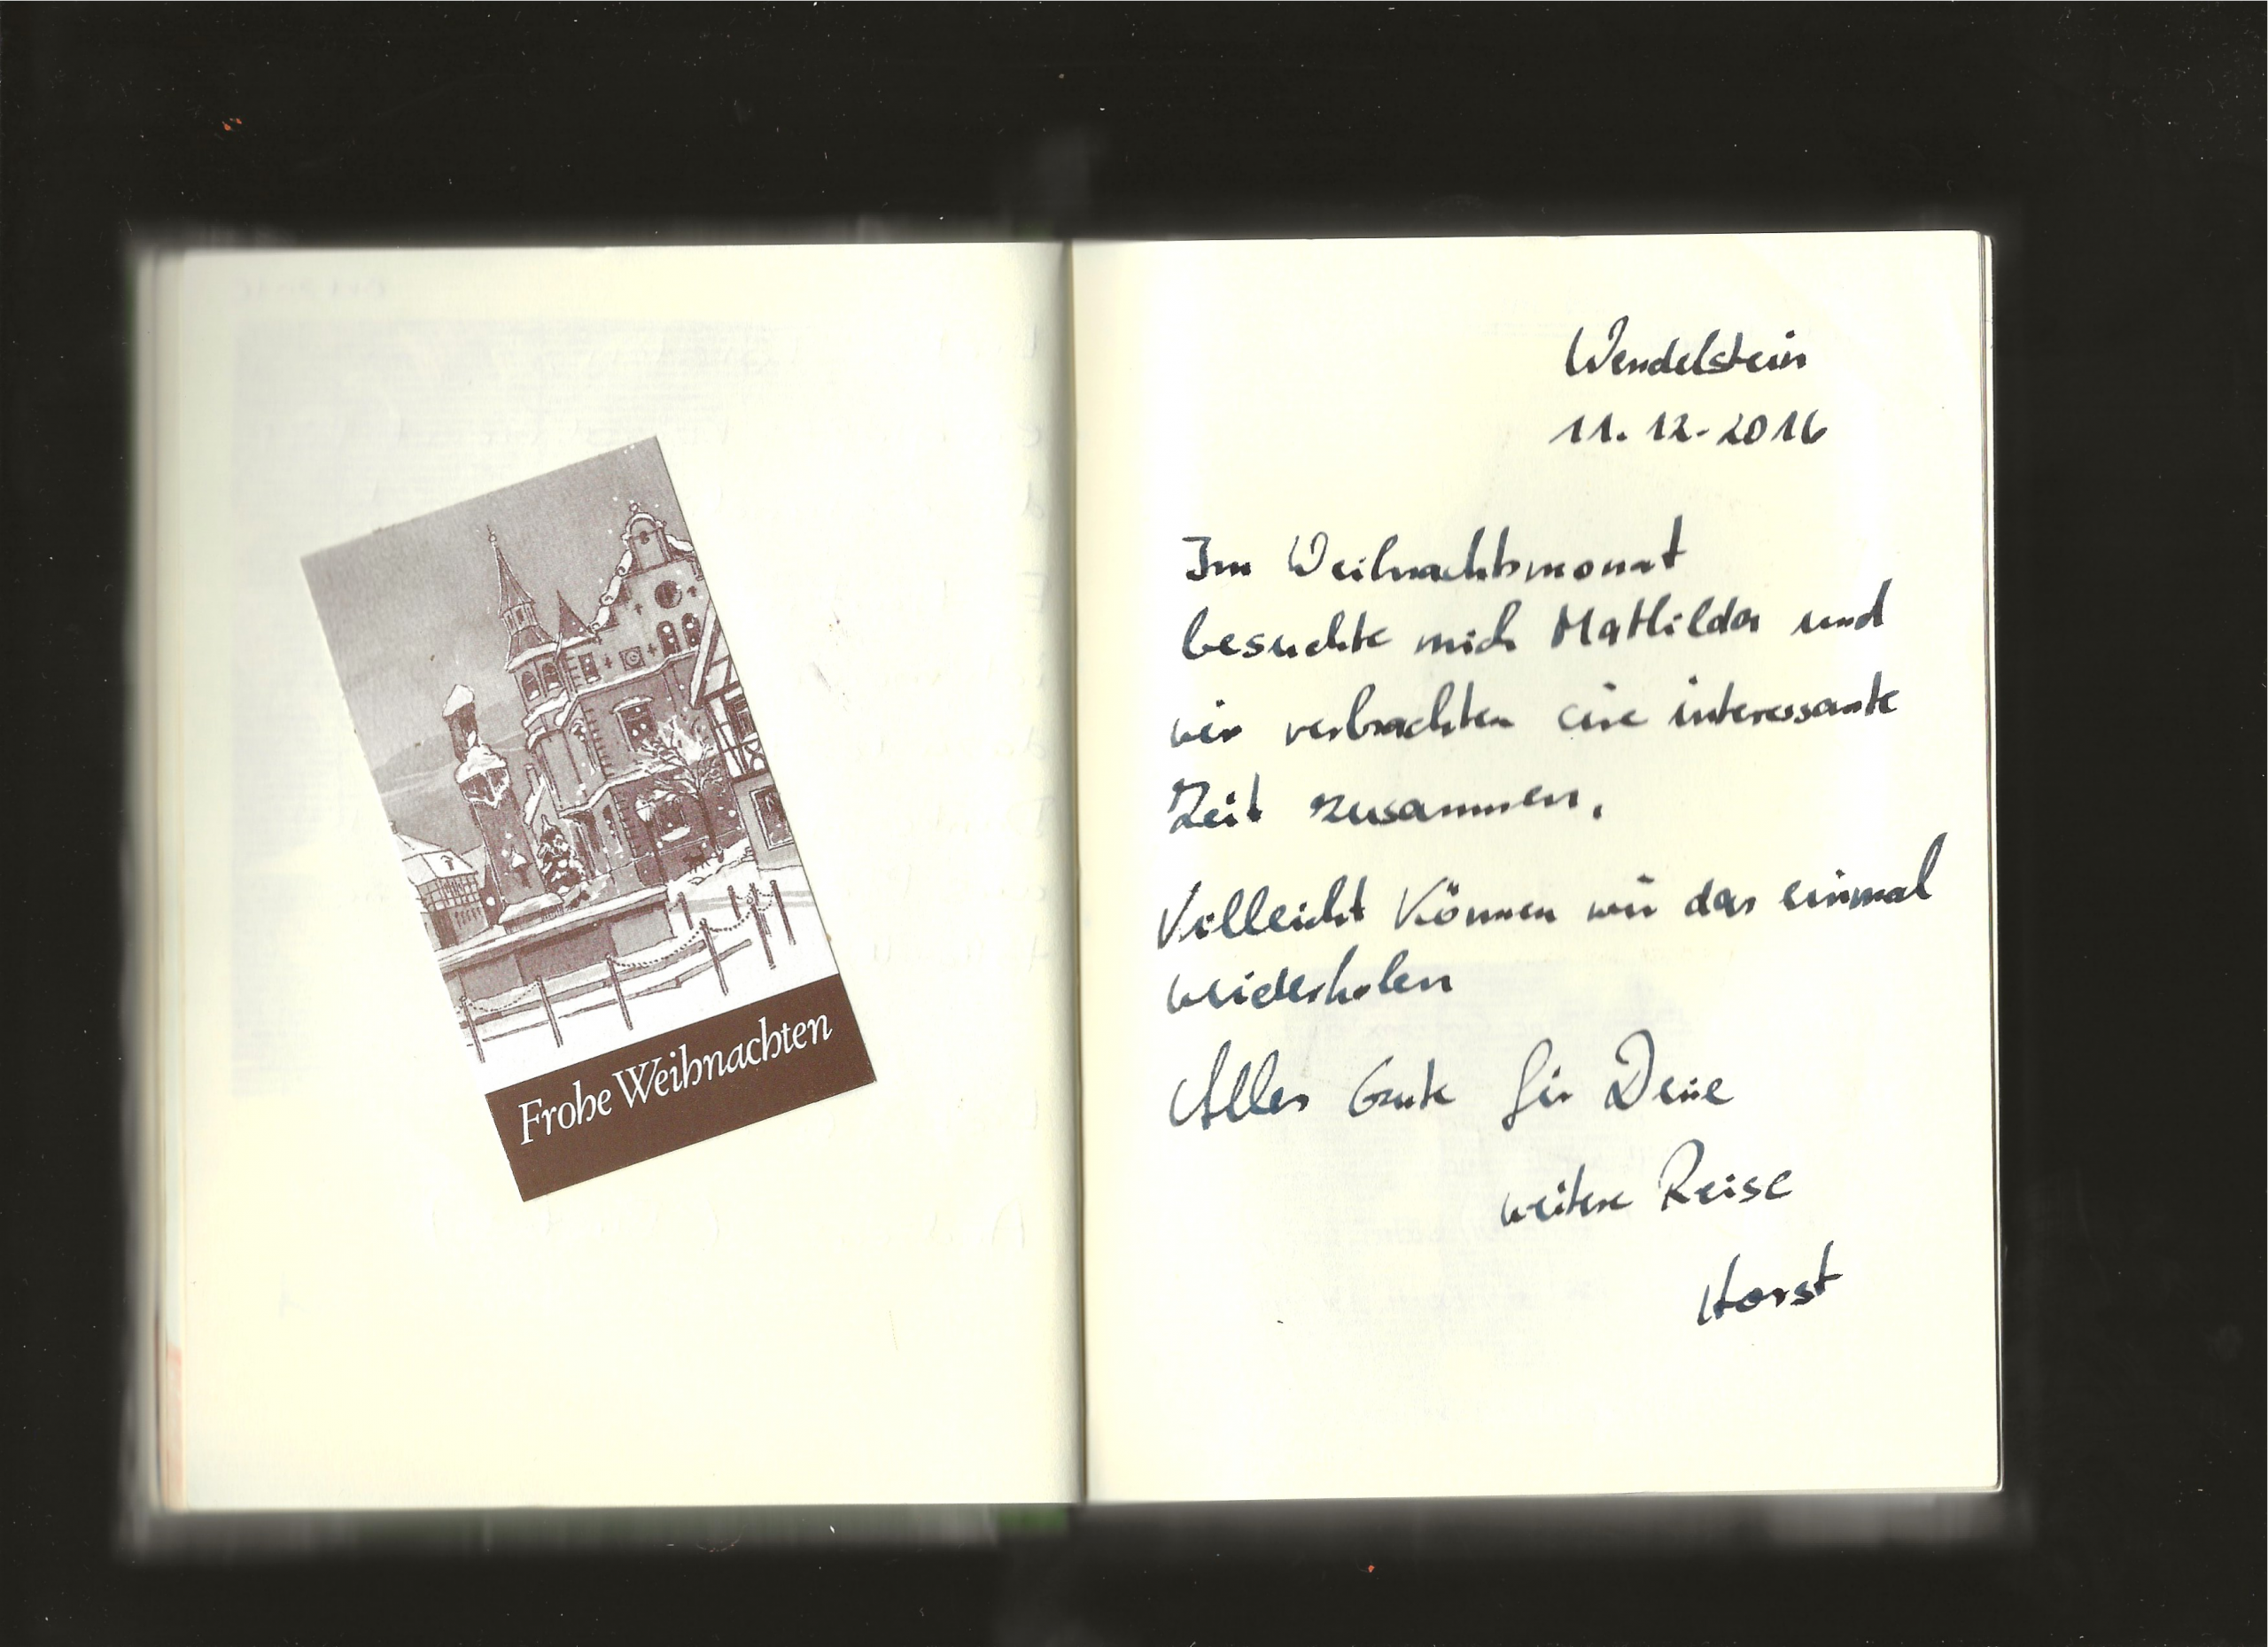 Frohe Weihnachten
Wendelstein
11.12-2016
Im Weihnachtsmonat
besuchte mich Mathilda und
wir verbrachten eine interessante
Zeit zusammen.
Villeicht Können wir das einmal
weiderholen
Alles Gute für Deine
weitere Reise
Horst